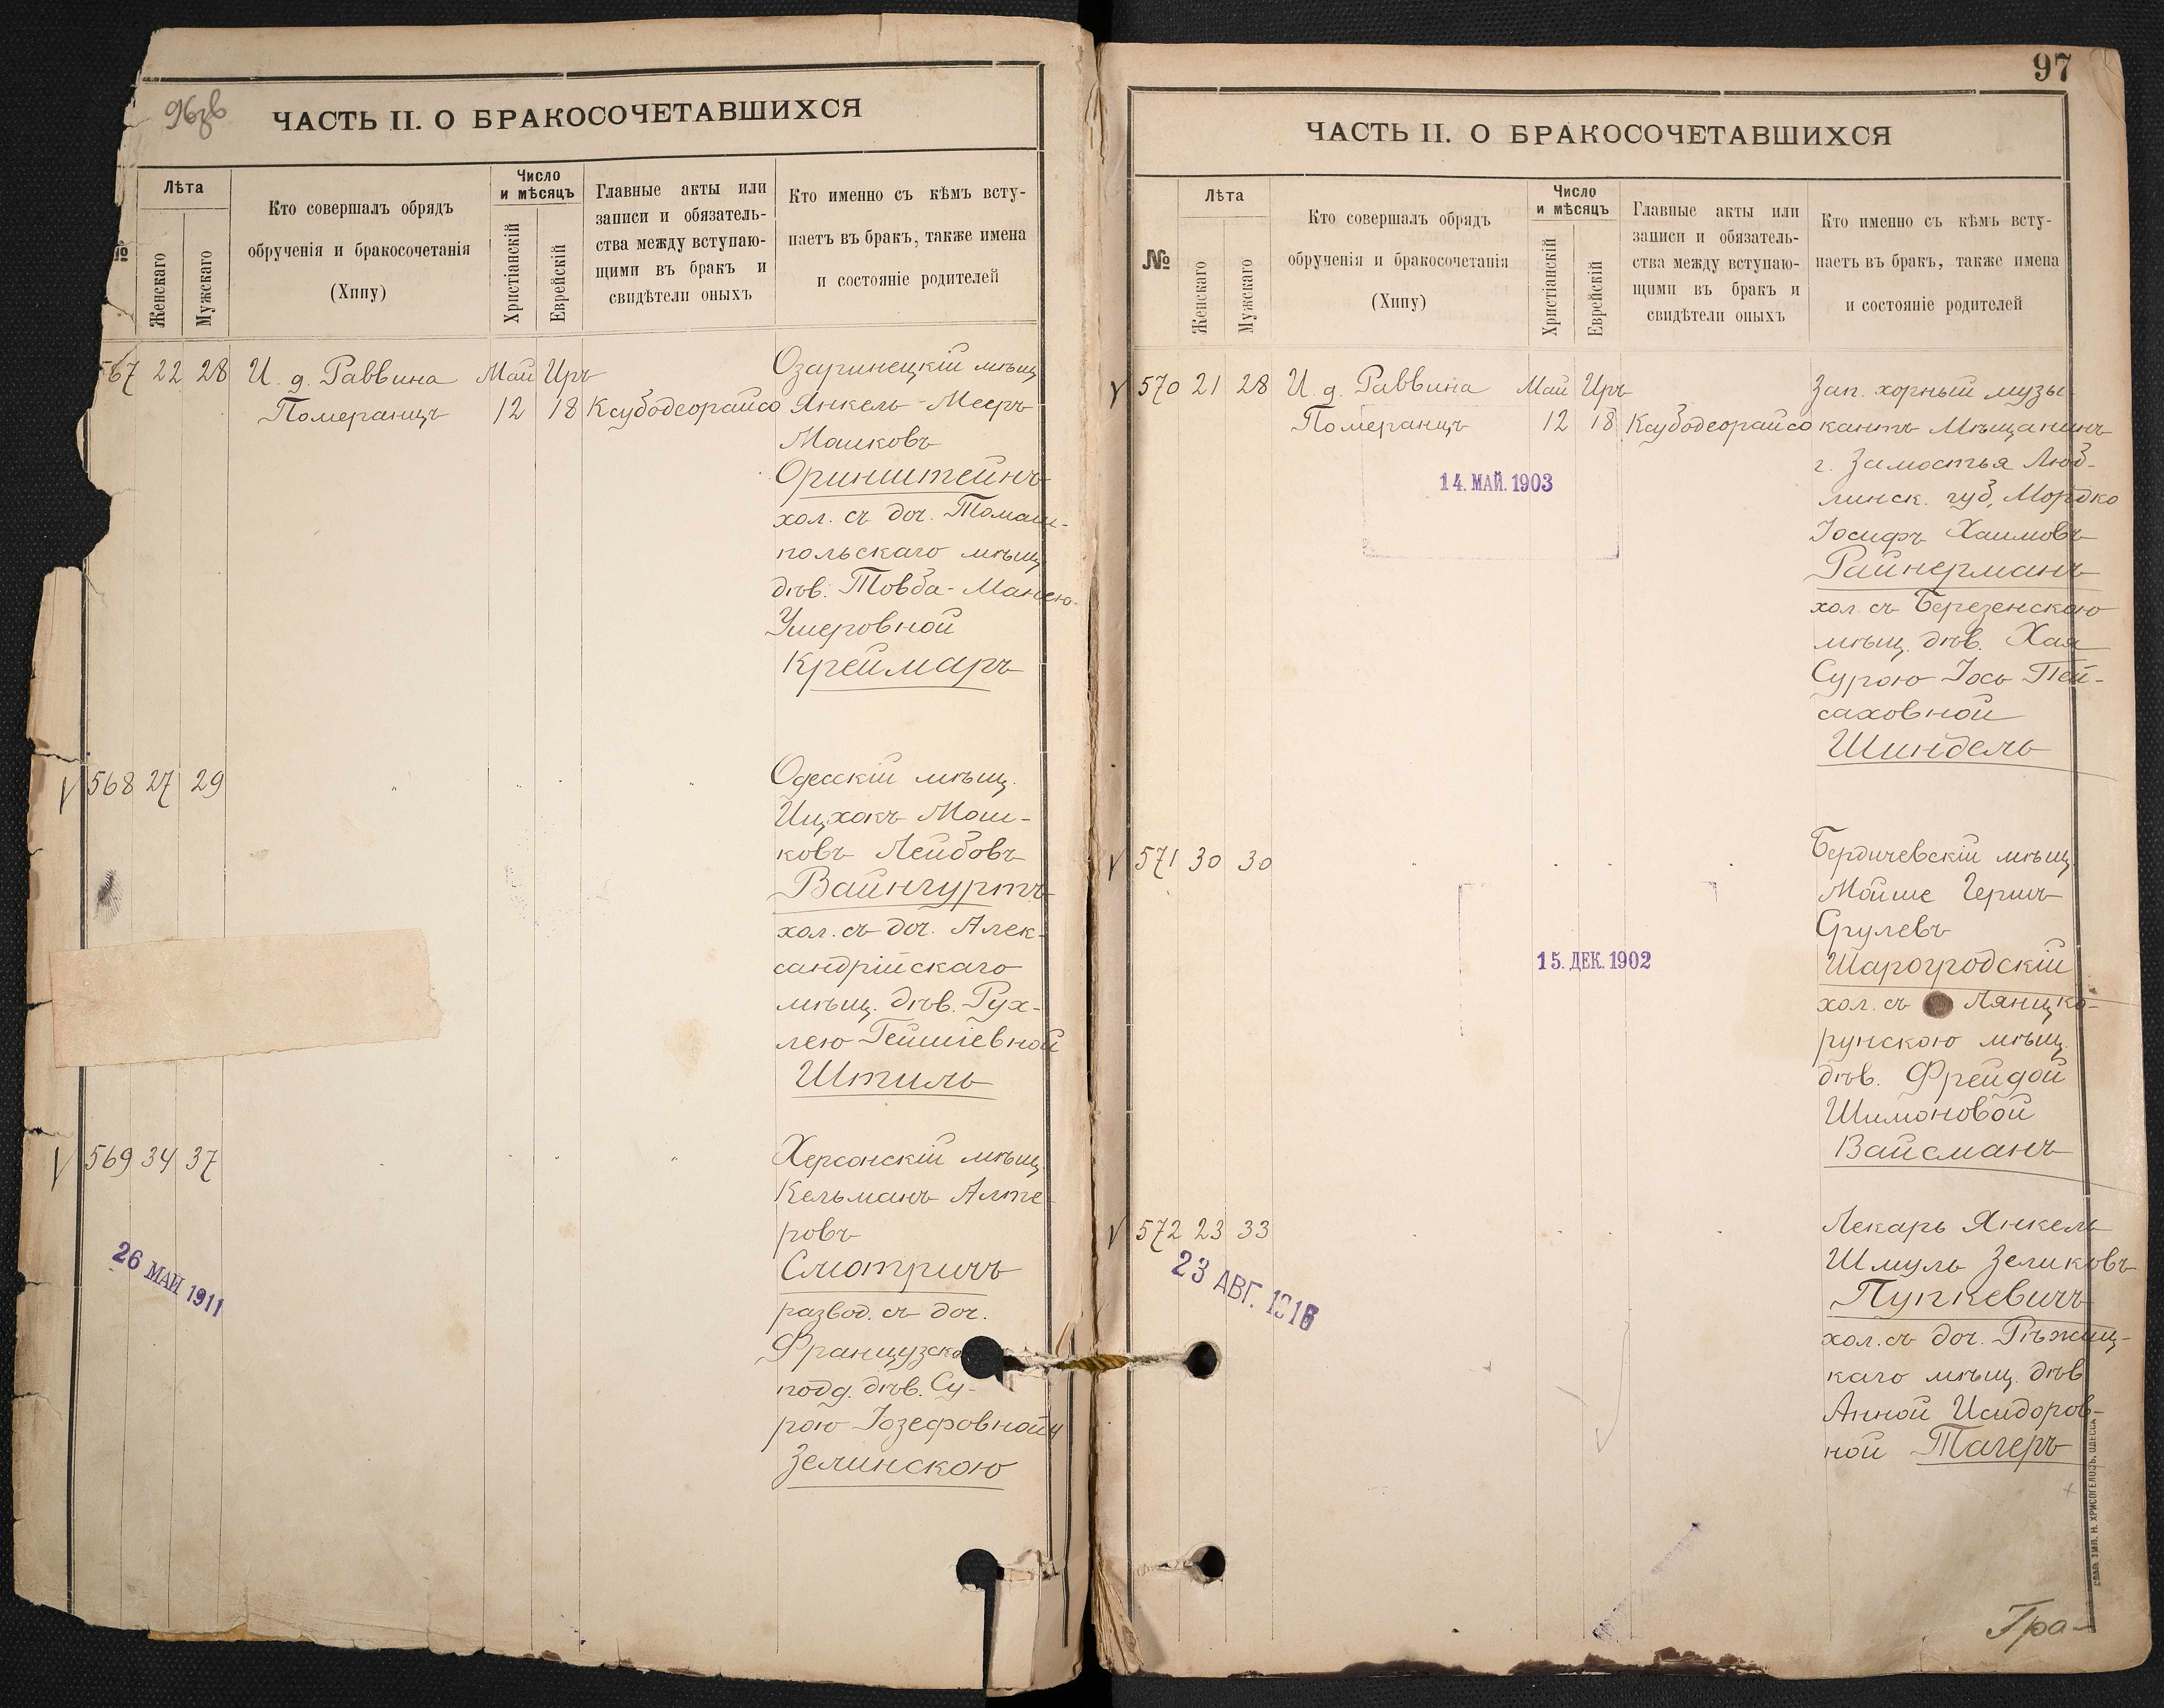 96зв
ЧАСТЬ II. О БРАКОСОЧЕТАВШИХСЯ
№
Лѣта
Женскаго
Мужскаго
Кто совершалъ обрядъ
обрученія и бракосочетанія
(Хипу)
Число
и мѣсяцъ
Христіанскій
Еврейскій
Главные акты или
записи и обязатель-
ства между вступаю-
щими въ бракъ и
свидѣтели оныхъ
Кто именно съ кѣмъ всту-
паетъ въ бракъ, также имена
и состояніе родителей
567 22 28 И. д. Раввина Май Иръ Озаринецкій мѣщ.
Померанцъ 12 18 Ксубодеорайсо Янкель-Мееръ
Машковъ
Оринштейнъ
хол. съ доч. Томаш-
польскаго мѣщ.
дѣв. Товба-Манею
Умеровной
Креймаръ
568 27 29 " " " " Одесскій мѣщ.
Ицхокъ Мош-
ковъ Лейбовъ
Вайнгуртъ
хол. съ доч. Алек-
сандрійскаго
мѣщ. дѣв. Рух-
лею Гейшіевной
Штиль
569 34 37 " " " " Херсонскій мѣщ.
Кельманъ Алте-
ровъ
Смотричъ
26 МАЙ 1911
развод. съ доч.
Французско
подд. дѣв. Су-
рою Іозефовной
Зелинскою
97
ЧАСТЬ II. О БРАКОСОЧЕТАВШИХСЯ
№
Лѣта
Женскаго
Мужскаго
Кто совершалъ обрядъ
обрученія и бракосочетанія
(Хипу)
Число
и мѣсяцъ
Христіанскій
Еврейскій
Главные акты или
записи и обязатель-
ства между вступаю-
щими въ бракъ и
свидѣтели оныхъ
Кто именно съ кѣмъ всту-
паетъ въ бракъ, также имена
и состояніе родителей
570 21 28 И. д. Раввина Май Иръ Зап. хорный музы-
Померанцъ 12 18 Ксубодеорайсо кантъ Мѣщанинъ
г. Замостья Люб-
14. МАЙ. 1903
линск. губ, Мордко
Іосифъ Хаимовъ
Райнерманъ
хол. съ Березенскою
мѣщ. дѣв. Хая
Сурою Іось Пей-
саховной
Шиндель
571 30 30 " " " " Бердичевскій мѣщ.
Мойше Гершъ
Срулевъ
15. ДЕК. 1902
Шарогродскій
хол. съ Лянцко-
рунскою мѣщ.
дѣв. Фрейдой
Шимоновой
Вайсманъ
572 23 33 " " " Лекарь Янкель
23 АВГ. 1916
Шмуль Зеликовъ
Пупкевичъ
хол. съ доч. Рѣжиц-
каго мѣщ. дѣв
Анной Исидоров-
ной Тагеръ
СЛАВ. ТИП. Н. ХРИСОГЕЛОСЪ, ОДЕССА
Гра-